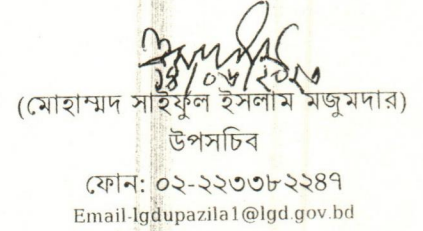 ১৪/০৬/২০২৩
(মোহাম্মদ সাইফুল ইসলাম মজুমদার)
উপসচিব
ফোন: ০২-২২৩৩৮২২৪৭
Email-lgdupazila1@lgd.gov.bd